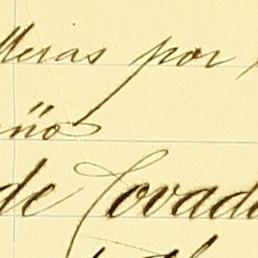 lleras por
eño
de Covado